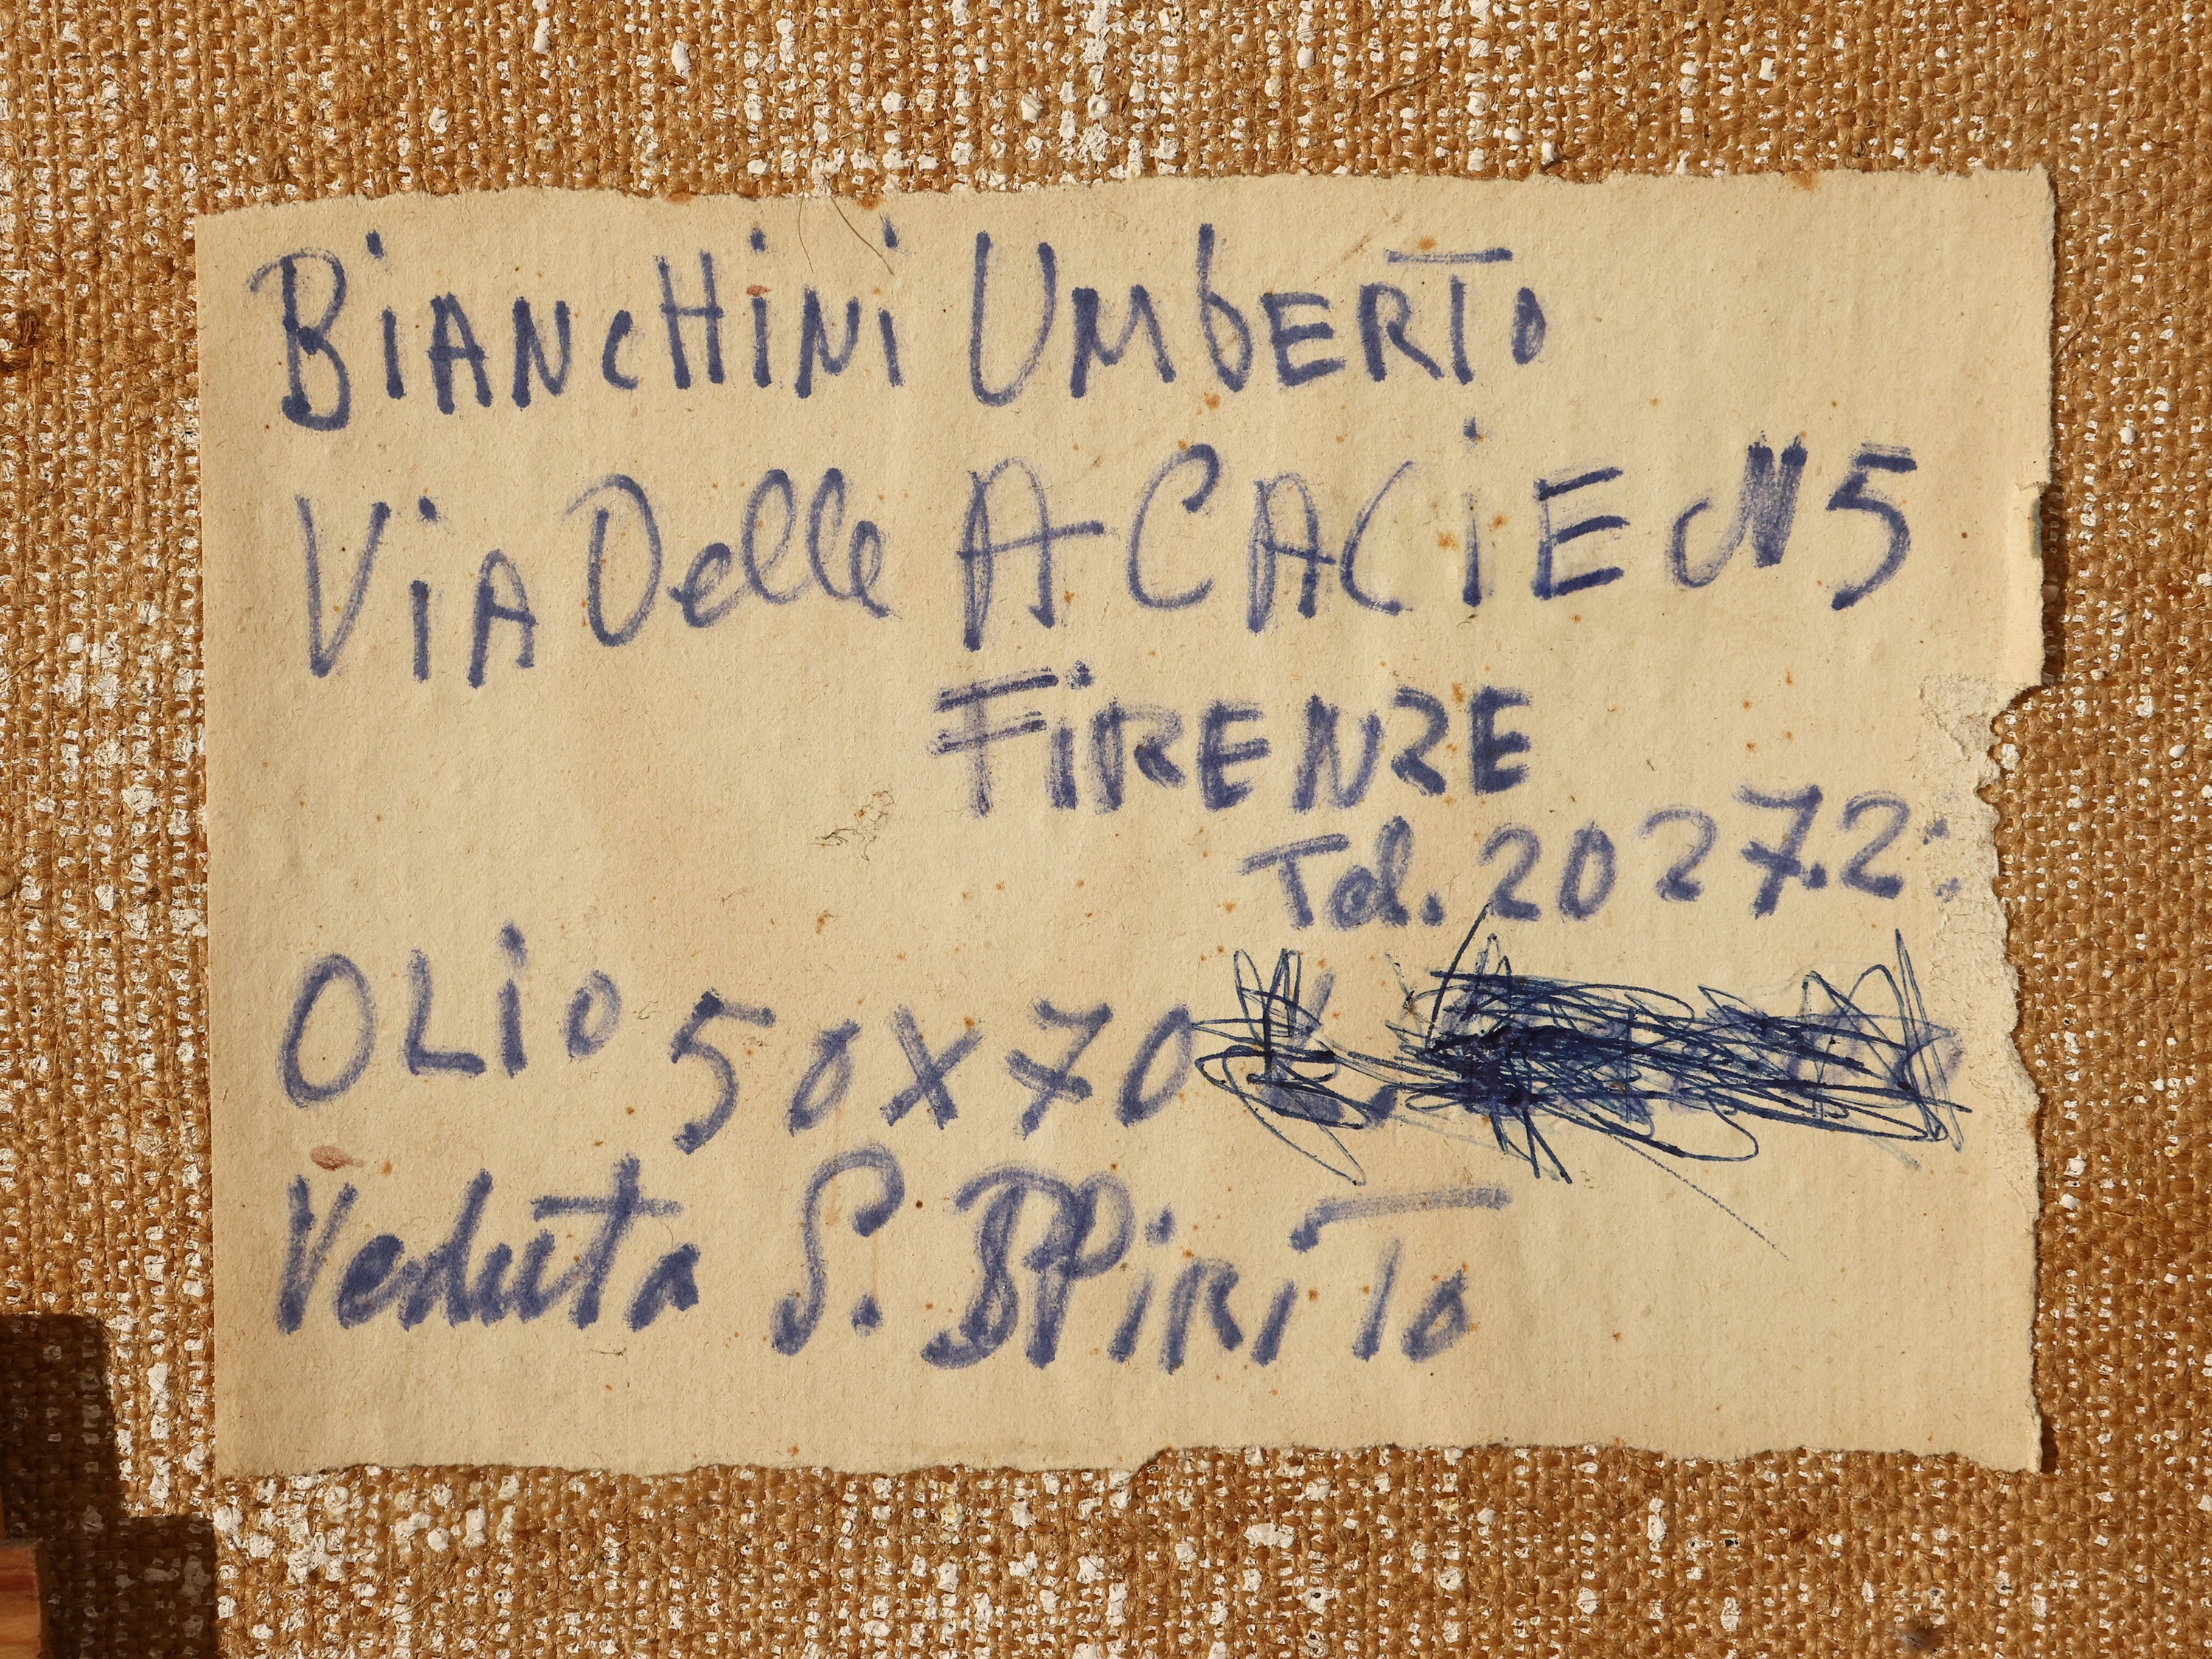 BiANcHiNi UmbERTo
ViA Delle ACACiE N 5
FiRENZE
Tel. 20 27.2
OLio 50x70
Veduta S. SPiRiTo